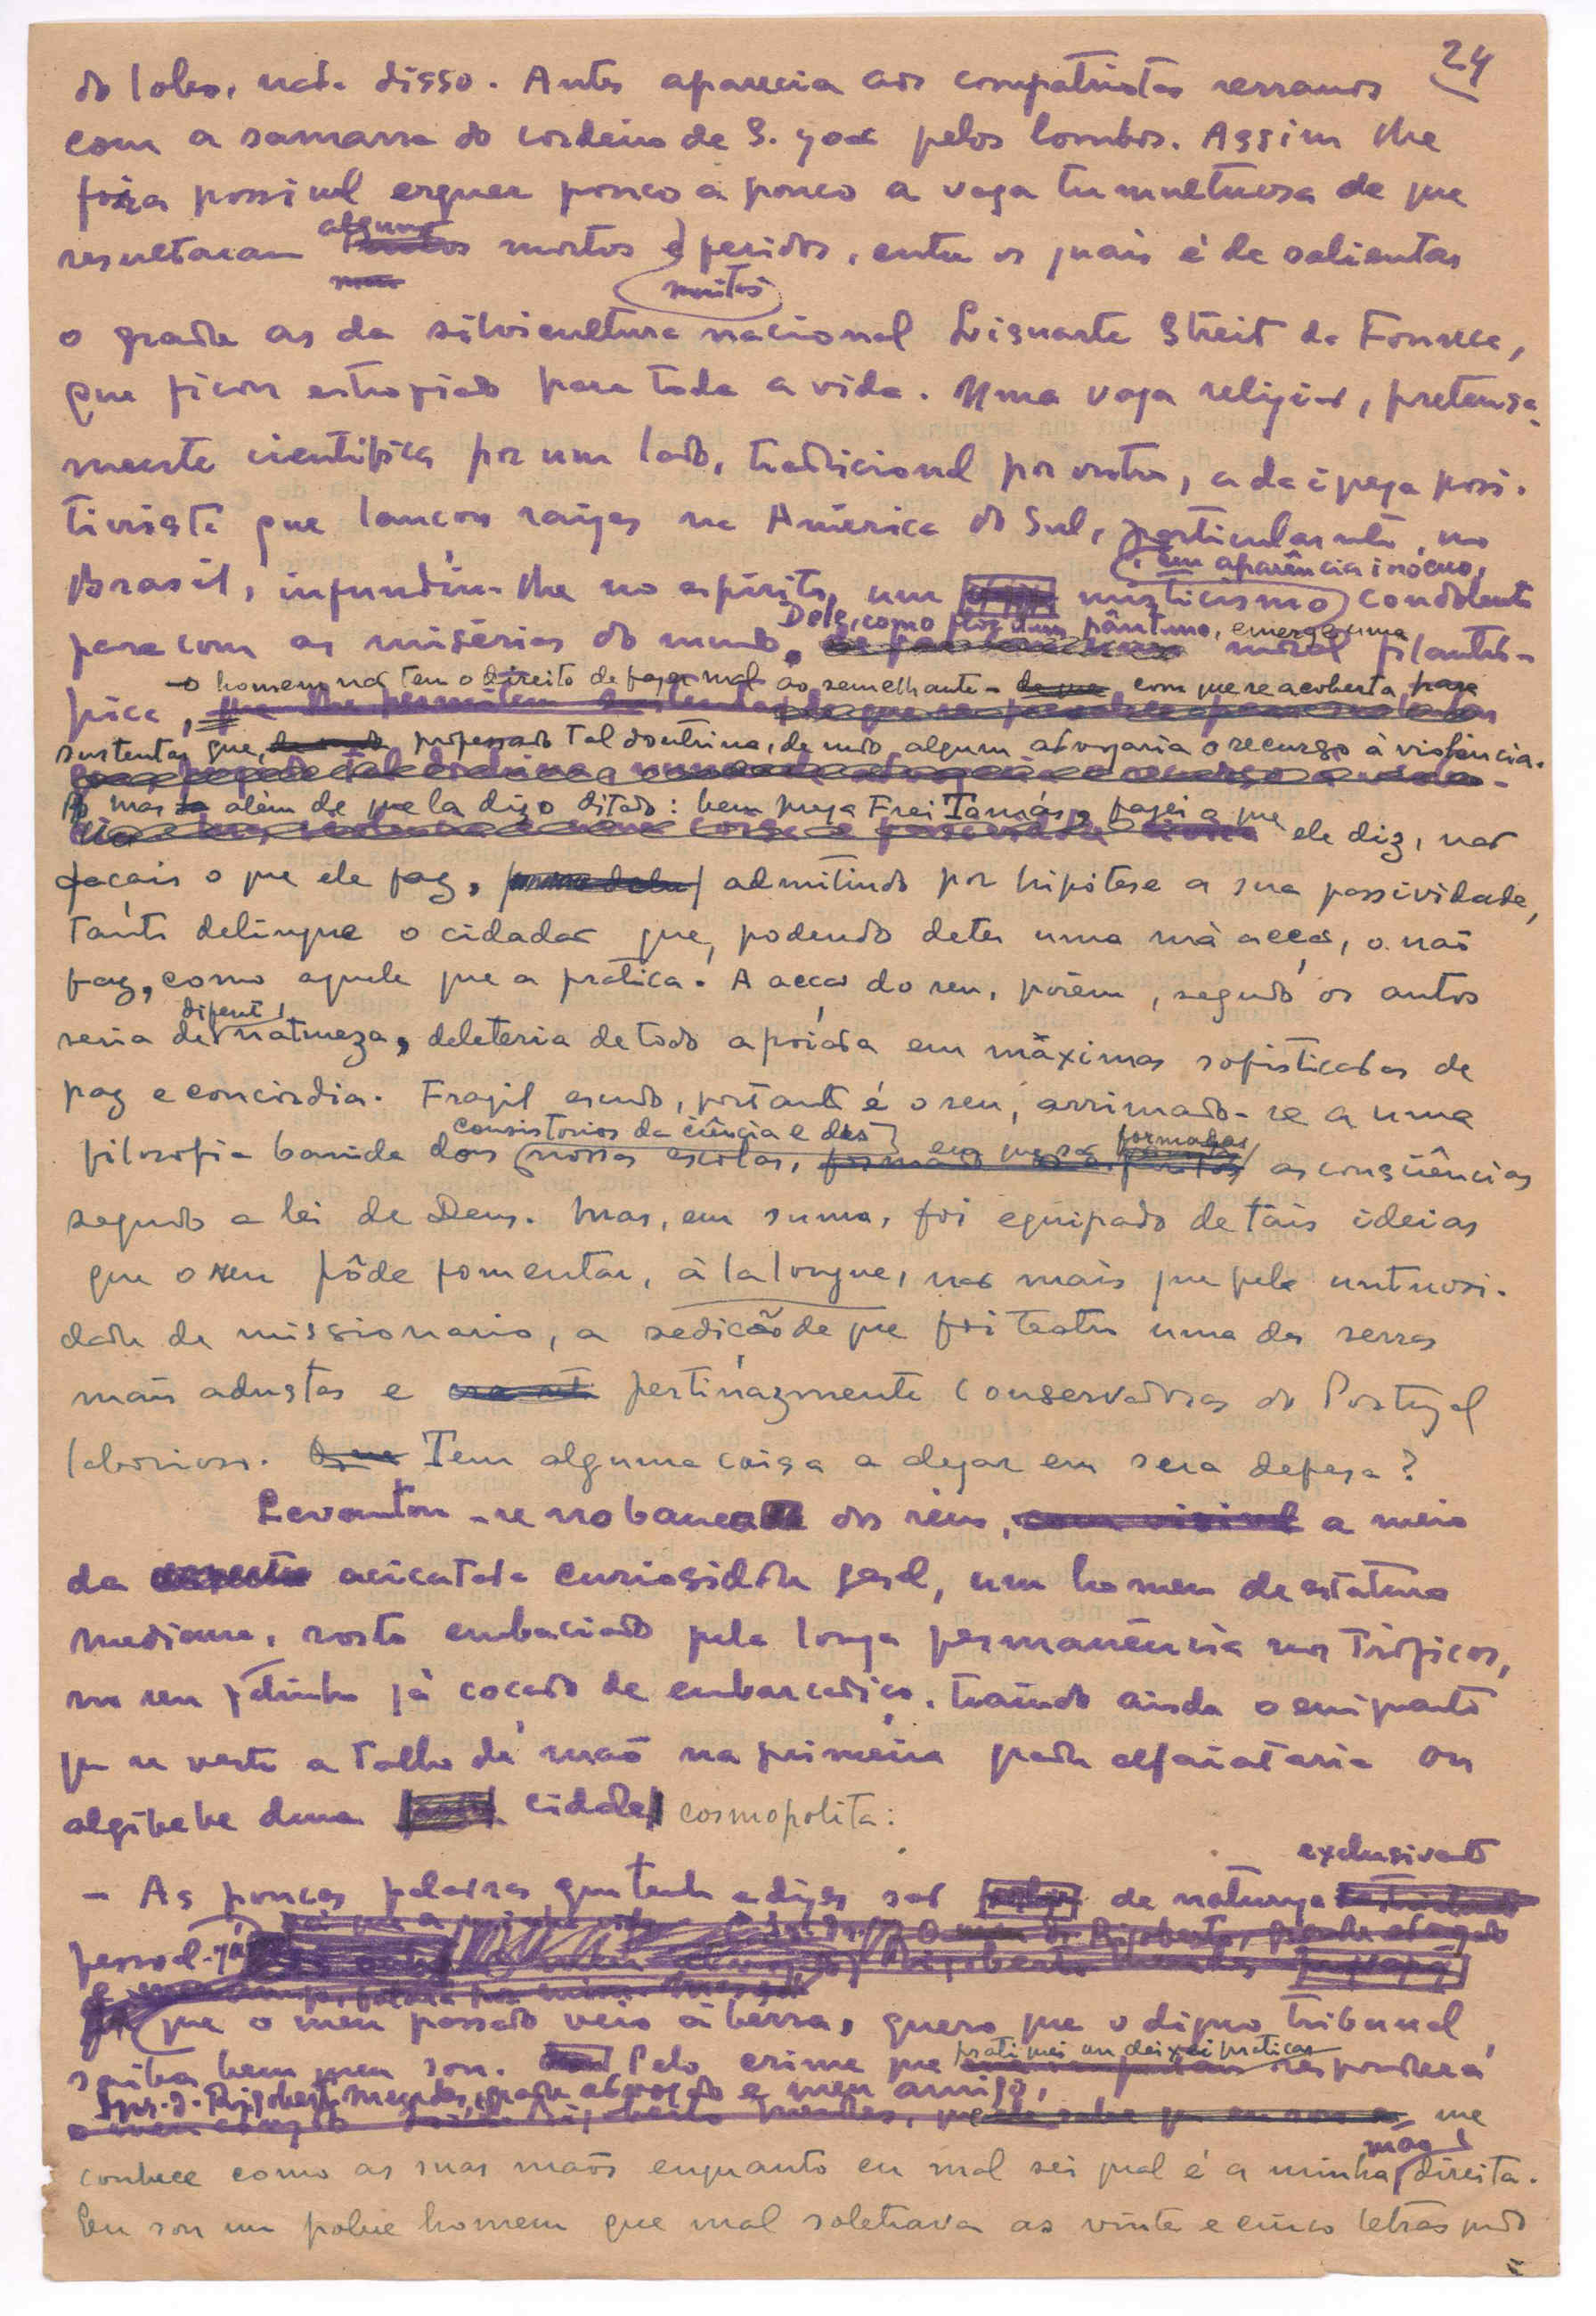 24
do lobo, nada disso. Antes aparecia aos compatriotas serranos
com a samarra do cordeiro de S. João pelos lombos. Assim lhe
fôra possivel erguer pouco a pouco a vaga tumultuosa de que
resultaram alguns mortos e feridos, entre os quais é de salientar
muitos
o grande ás da silvicultura nacional Lisuarte Streit da Fonseca,
que ficou estropiado para toda a vida. Uma vaga religião, pretensa-
mente cientifica por um lado, tradicional por outro, a da igreja posi-
tivista que lançou raizes na América do Sul, particularmte no
, em aparência inócuo,
Brasil, infundiu-lhe no espírito um misticismo condolente
Dele, como flor dum pântano, emerge uma
para com as misérias do mundo. moral filantró-
- o homem não tem o direito de fazer mal ao semelhante - com que se acoberta para
pica,
sustentar que, professando tal doutrina, de modo algum advogaria o recurso à violência.
mas além de que lá diz o ditado: bem prega Frei Tomás, fazei o que
ele diz, não
façais o que ele faz, admitindo por hipótese a sua passividade,
tanto delinque o cidadão que, podendo deter uma má acção, o não
faz, como aquele que a pratica. A acção do reu, porém, segundo os autos
diferente
seria de natureza, deleteria de todo apoiada em máximas sofisticadas de
paz e concórdia. Fragil escudo, portanto é o seu, arrimado-se a uma
consistorios da ciência e das formadas
filosofia banida dos nossas escolas, em que são as consciências
segundo a lei de Deus. Mas, em suma, foi equipado de tais ideias
que o reu pôde fomentar, à la longue, não mais que pela untuosi-
dade de missionario, a sedição de que foi teatro uma das serras
mais adustas e pertinazmente conservadoras do Portugal
laborioso. Tem alguma coisa a alegar em sua defesa?
Levantou-se no banco dos réus, a meio
da acicatada curiosidade geral, um homem de estatura
mediana, rosto embaciado pela longa permanência nos trópicos,
no seu fatinho já coçado de embarcadiço, traindo ainda o emigrante
que se veste a talho de mão na primeira grande alfaiataria ou
algibebe duma cidade cosmopolita:
exclusivamte
- As poucas palavras que tenho a dizer são de natureza
pessoal. Já
que o meu passado veio à berra, quero que o digno tribunal
pratiquei ou deixei praticar
saiba bem quem sou. Pelo crime que responderá
Snr. Dr. Rigoberto Mendes, grande advogado e meu amigo,
me
mão
conhece como as suas mãos enquanto eu mal sei qual é a minha direita.
Eu sou um pobre homem que mal soletrava as vinte e cinco letras qudo